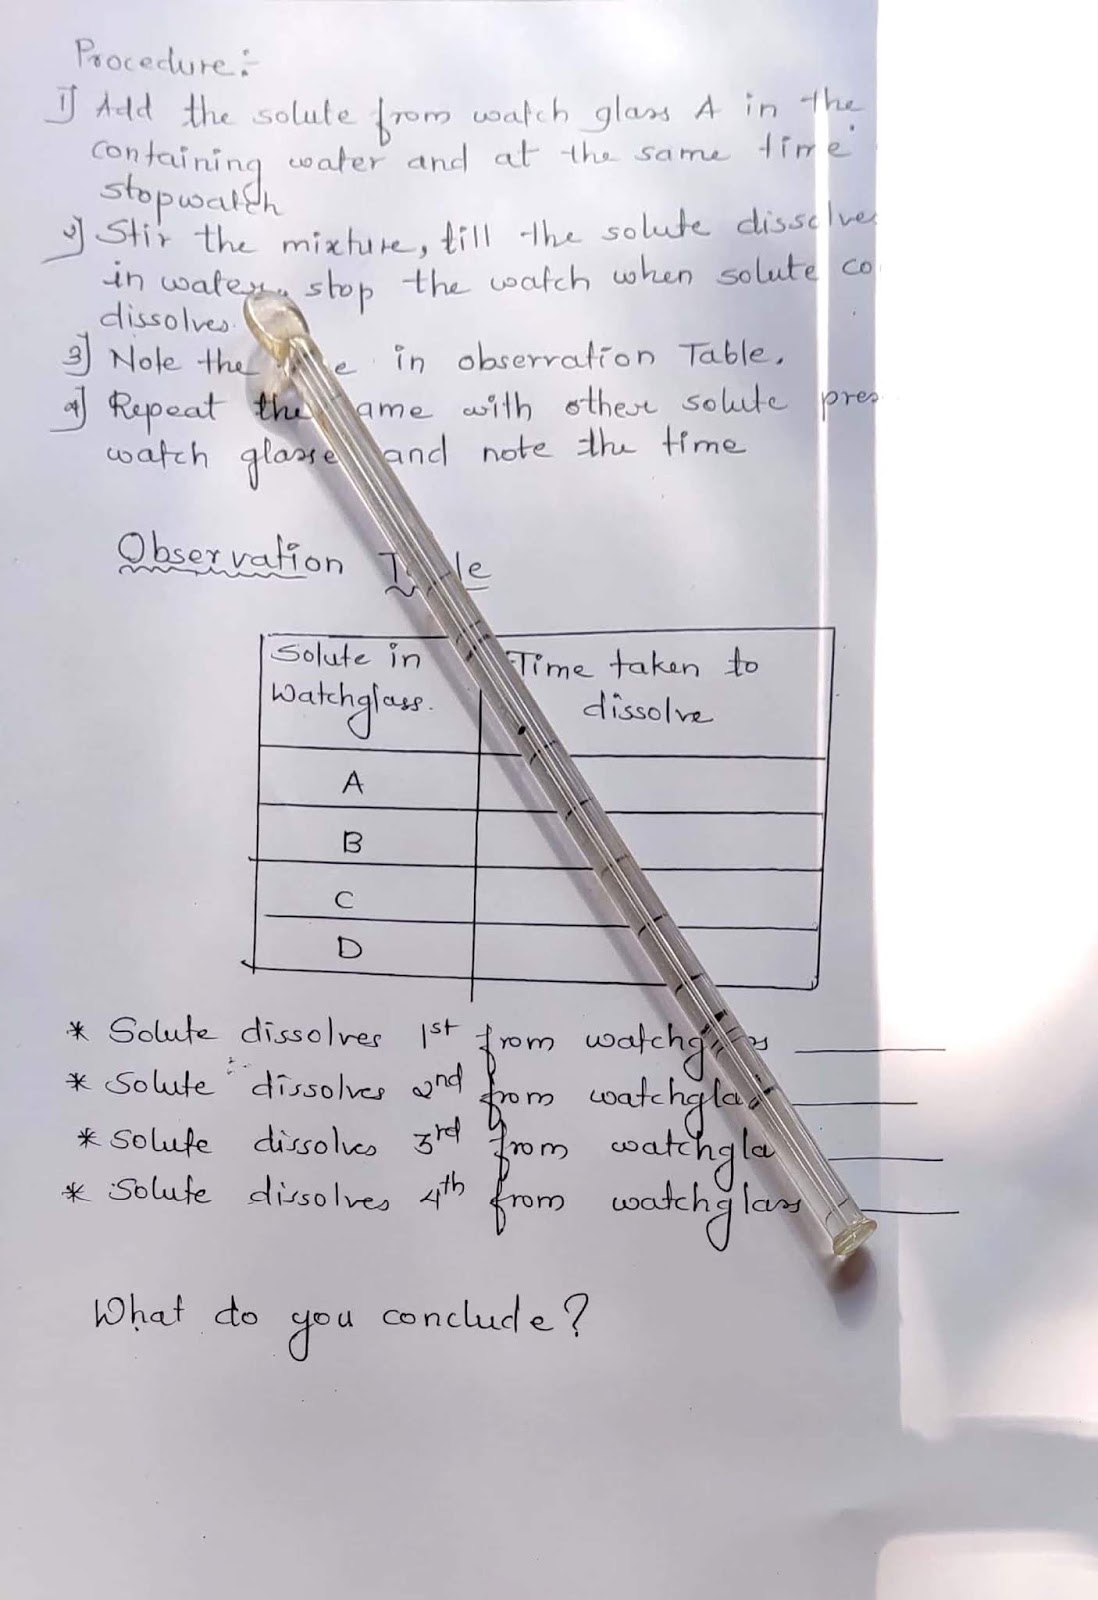 Procedure:-
1] Add the solute from watch glass A in the
containing water and at the same time
stopwatch
2] Stir the mixture, till the solute dissolves
in water, stop the watch when solute co
dissolves.
3] Note the e in observation Table.
4] Repeat the ame with other solute pres
watch glasse and note the time
Observation T le
Solute in Time taken to
Watchglass. dissolve
A
B
C
D
* Solute dissolves 1st from watchg s
* Solute dissolves 2nd from watchgla
* Solute dissolves 3rd from watchgla
* Solute dissolves 4th from watchglass
What do you conclude?